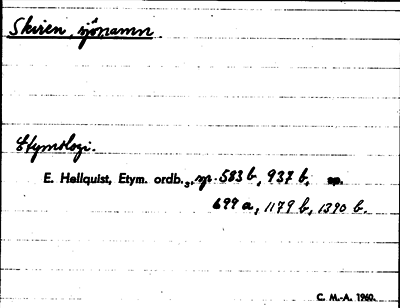 Skiren, sjönamn.
Etymologi.
E. Hellquist, Etym. ordb.₃, sp. 583 b, 937 b, sp.
699 a, 1179 b, 1390 b.
C. M.-A. 1960.